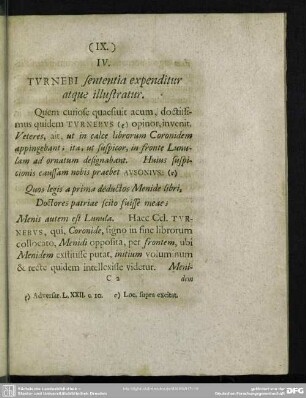 (IX.)
IV.
TVRNEBI sententia expenditur
atque illustratur.
Quem curiose quaesiuit acum, doctissi-
mus quidem TVRNEBVS (c) opinor, invenit.
Veteres, ait, ut in calce librorum Coronidem
appingebant, ita, ut suspicor, in fronte Lunu-
lam ad ornatum designabant. Huius suspi-
cionis caussam nobis praebet AVSONIVS: (e)
Quos legis a prima deductos Menide libri,
Doctores patriae scito fuisse meae:
Menis autem est Lunula. Haec Cel. TVR-
NEBVS, qui, Coronide, signo in fine librorum
collocato, Menidi opposita, per frontem, ubi
Menidem exstitisse putat, initium volum num
& recte quidem intellexisse videtur. Meni-
C 2 dem
c) Adversar. L. XXII. c. 10. e) Loc. supra excitat.